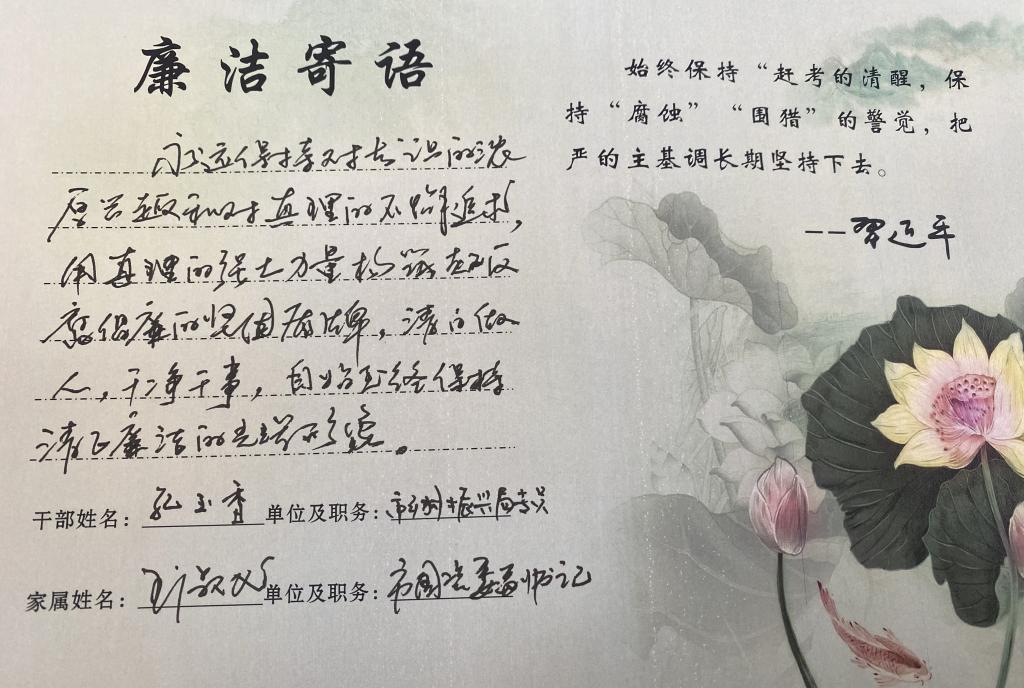 廉洁寄语
永远保持对知识的浓
厚兴趣和对真理的不懈追求，
用真理的强大力量构筑起反
腐倡廉的坚固屏障，清白做
人，干净干事，自始至终保持
清正廉洁的良好形象。
干部姓名：孔玉香 单位及职务：市乡村振兴局
家属姓名： 单位及职务：市国资委副书记
始终保持“赶考的清醒，保
持“腐蚀”“围猎”的警觉，把
严的主基调长期坚持下去。
——习近平